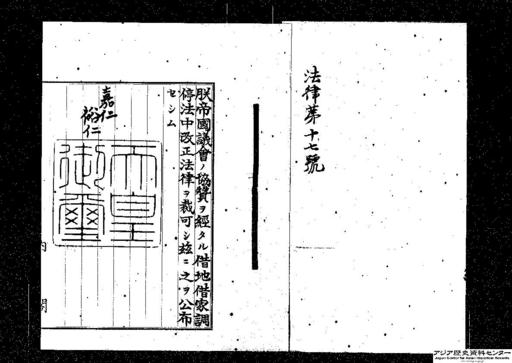 法律第十七號
朕帝國議會ノ協賛ヲ經タル借地借家調
停法中改正法律ヲ裁可シ玆ニ之ヲ公布
セシム
嘉仁
裕仁
天皇
御璽
内閣
アジア歴史資料センター
Japan Center for Asian Historical Records